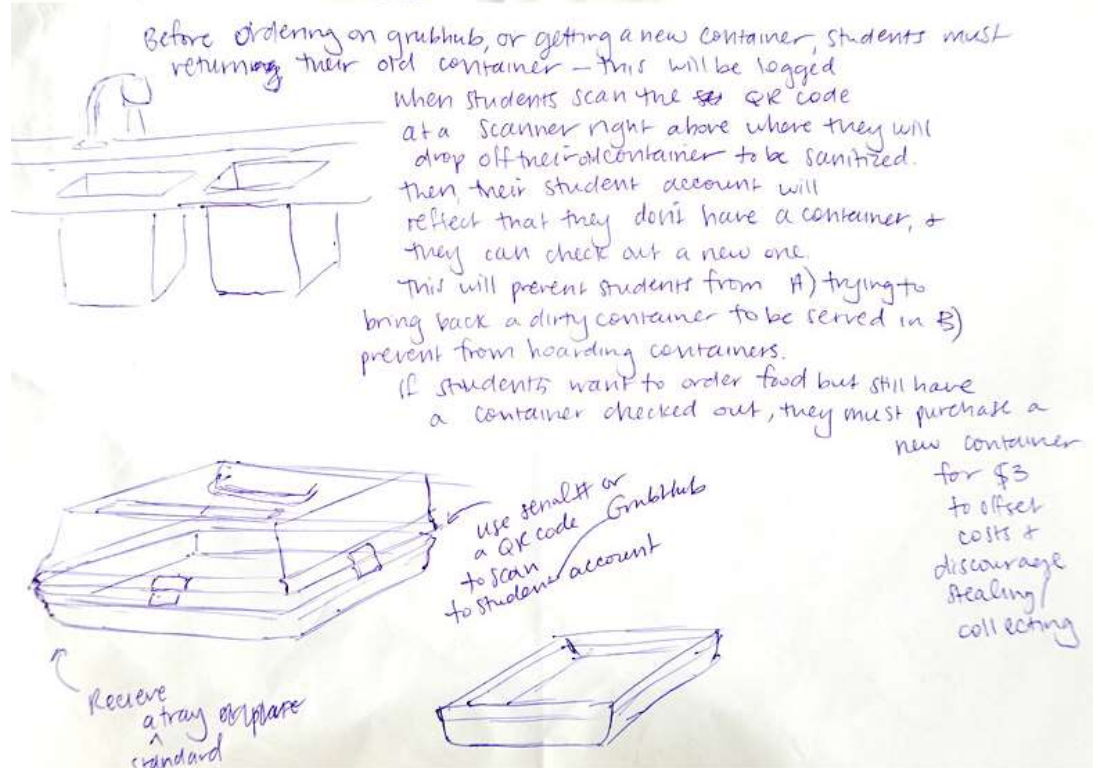 Before ordering on grubhub, or getting a new container, students must
returning their old container – this will be logged
when students scan the QR code
at a scanner right above where they will
drop off their old container to be sanitized.
then, their student account will
reflect that they don't have a container, &
they can check out a new one.
This will prevent students from A) trying to
bring back a dirty container to be served in B)
prevent from hoarding containers.
if students want to order food but still have
a container checked out, they must purchase a
new container
for $3
to offset
costs &
discourage
stealing/
collecting
use serial # or
a QR code GrubHub
to scan
to student account
Recieve
a tray or plate
standard